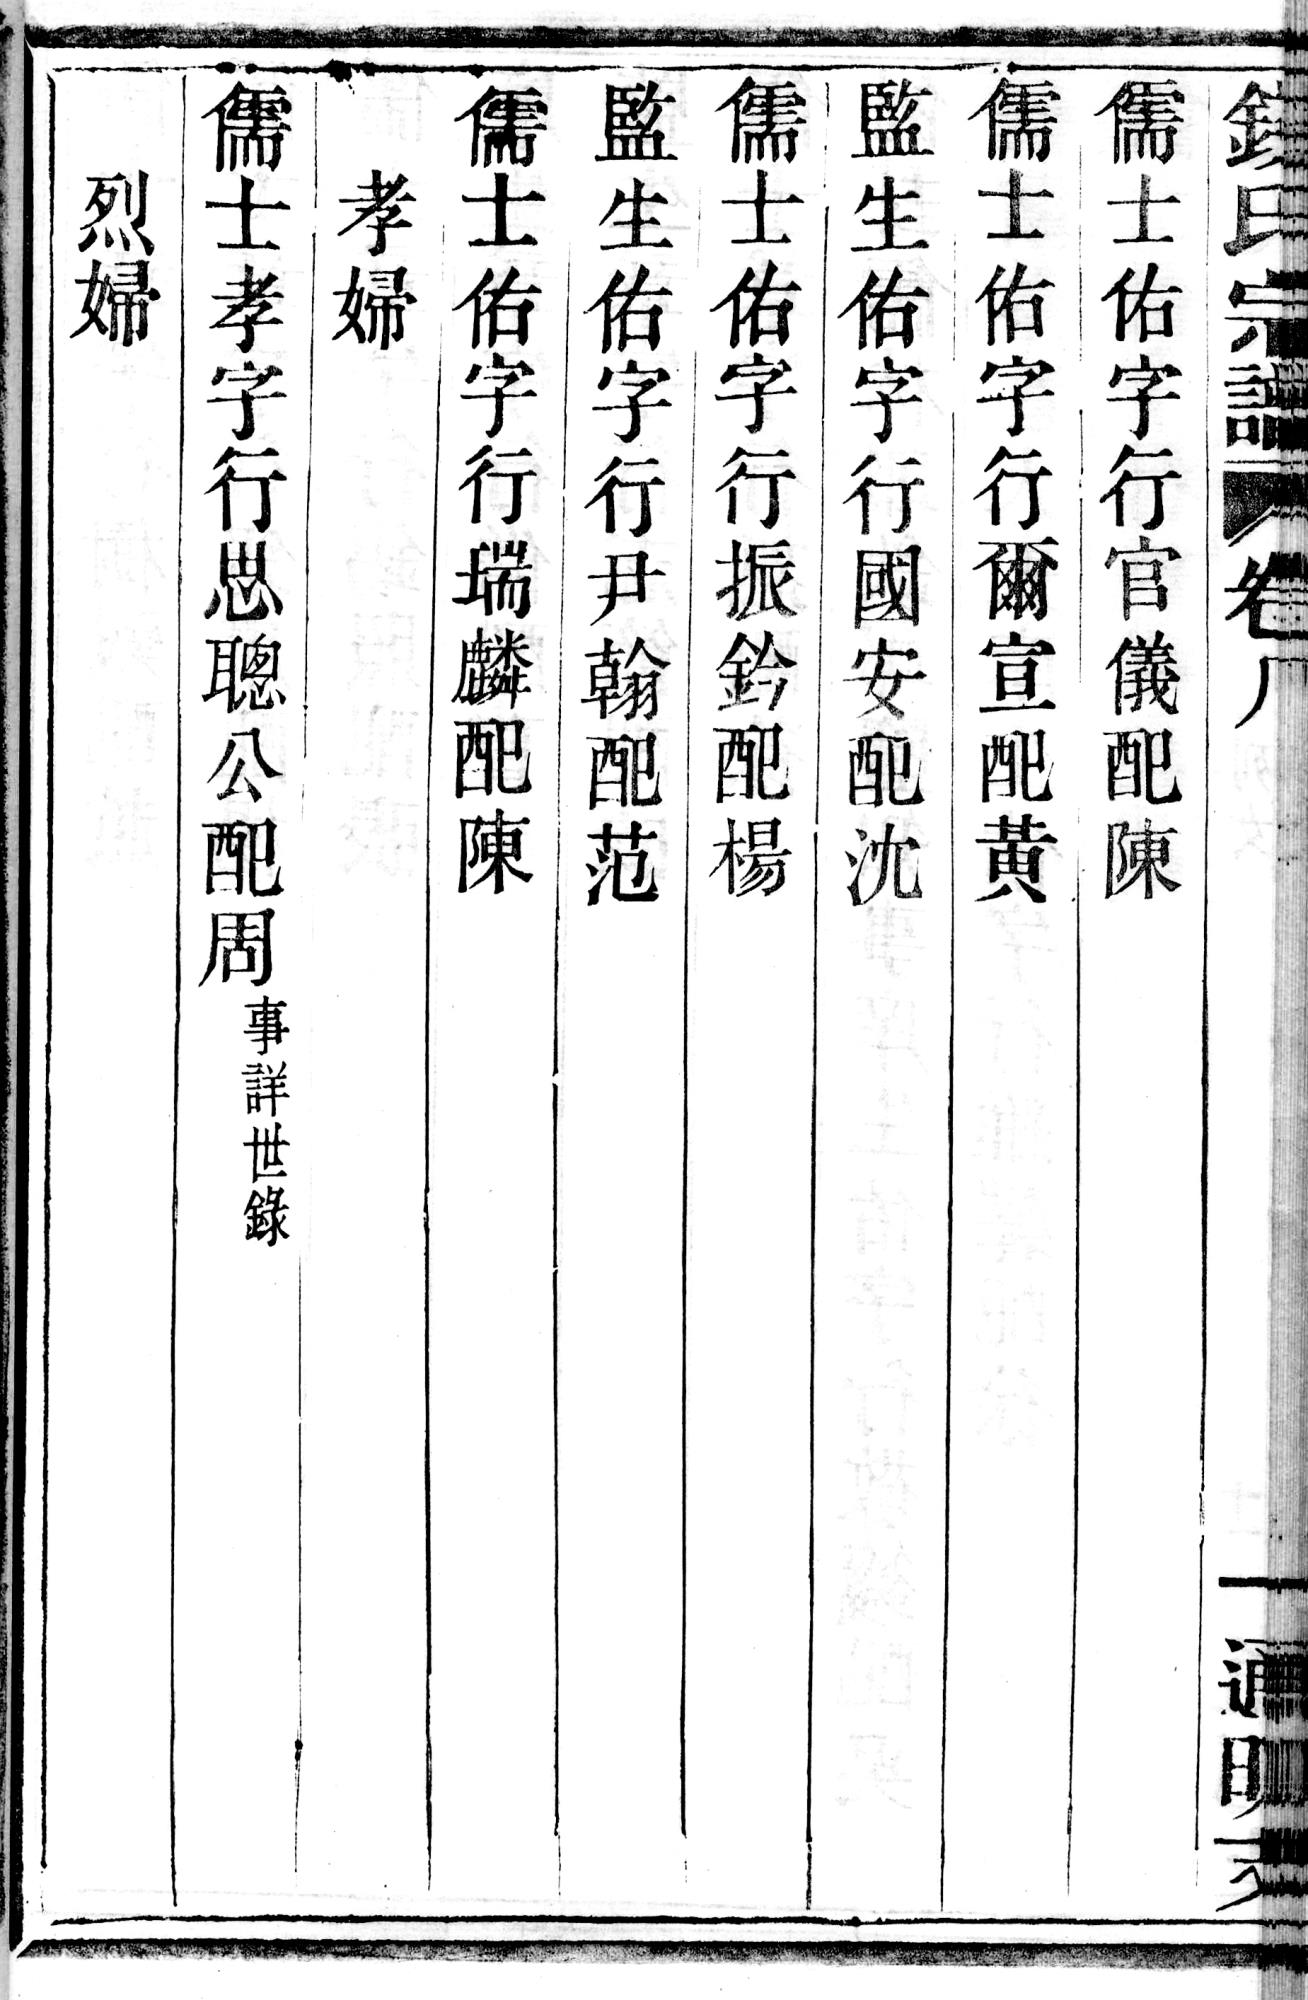 氏宗譜 卷八
儒士佑字行官儀配陳
儒士佑字行爾宣配黃
監生佑字行國安配沈
儒士佑字行振鈐配楊
監生佑字行尹翰配范
儒士佑字行瑞麟配陳
孝婦
儒士孝字行思聰公配周 事詳世錄
烈婦